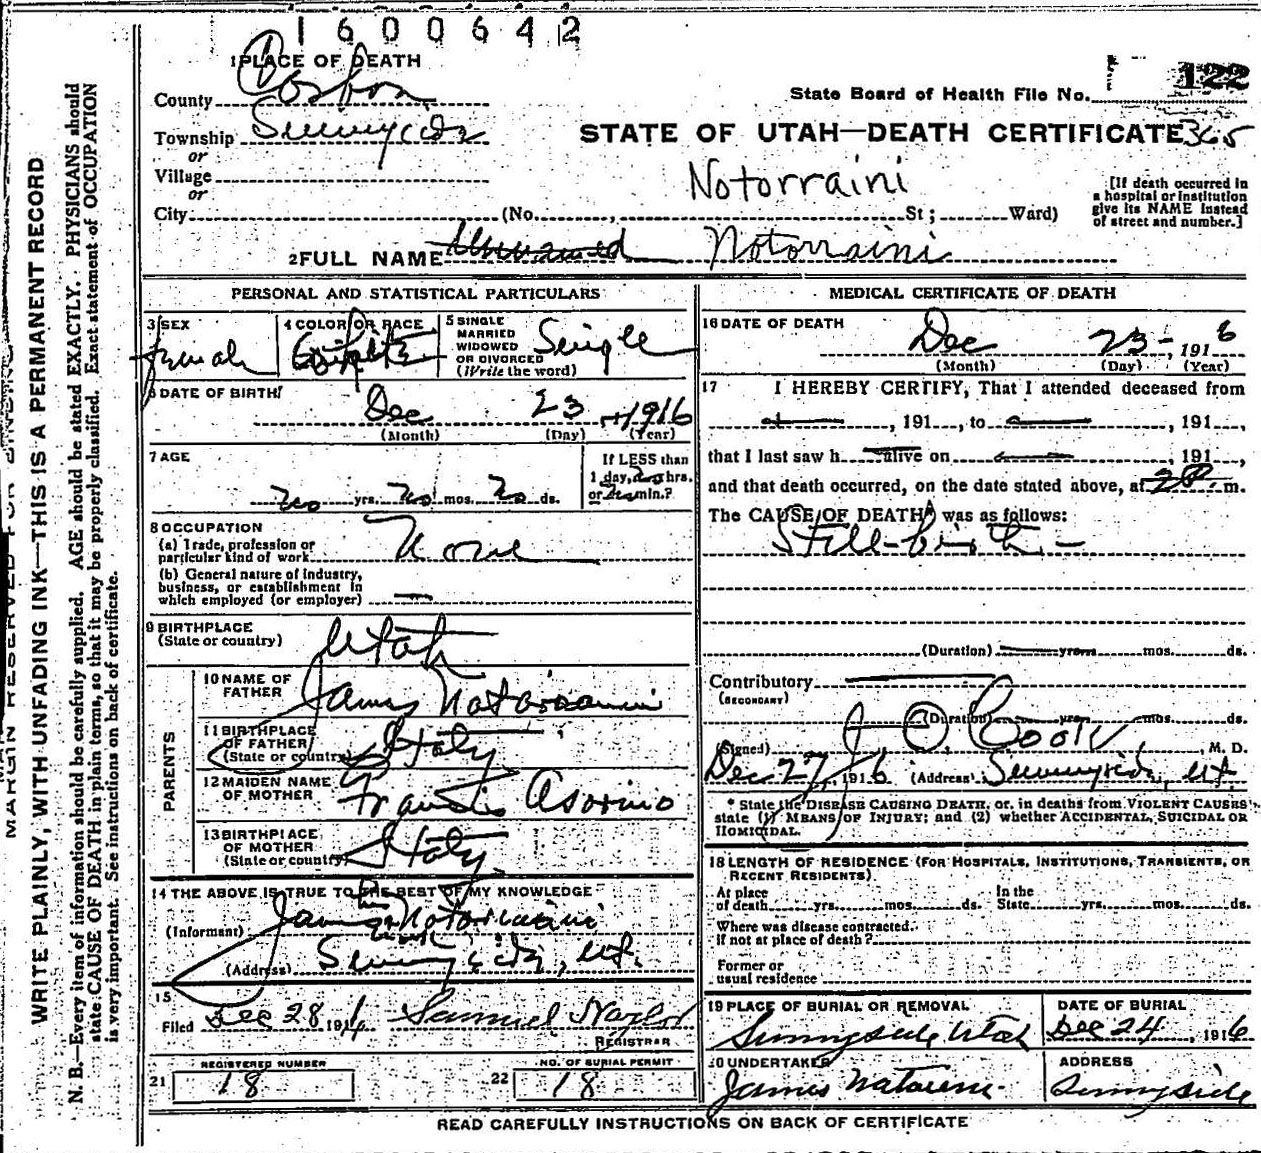 1600642
1 PLACE OF DEATH
County Carbon
State Board of Health File No. 122
Township Sunnyside
STATE OF UTAH—DEATH CERTIFICATE 365
or
Village
Notorraini
or
City (No. , St; Ward)
[If death occurred in a hospital or institution give its NAME instead of street and number.]
2 FULL NAME Unnamed Notorraini
PERSONAL AND STATISTICAL PARTICULARS
3 SEX
Female
4 COLOR OR RACE
White
5 SINGLE MARRIED WIDOWED OR DIVORCED (Write the word)
Single
6 DATE OF BIRTH
Dec 23 1916
(Month) (Day) (Year)
7 AGE
no yrs. no mos. no ds.
If LESS than 1 day, no hrs. or no min.?
8 OCCUPATION
(a) Trade, profession or particular kind of work None
(b) General nature of industry, business, or establishment in which employed (or employer) —
9 BIRTHPLACE
(State or country) Utah
PARENTS
10 NAME OF FATHER James Notorraini
11 BIRTHPLACE OF FATHER (State or country) Italy
12 MAIDEN NAME OF MOTHER
13 BIRTHPLACE OF MOTHER (State or country) Italy
14 THE ABOVE IS TRUE TO THE BEST OF MY KNOWLEDGE
(Informant) James Notorraini
(Address) Sunnyside, Ut.
15
Filed Dec 28 1916 Samuel Naylor
REGISTRAR
21 REGISTERED NUMBER 18
22 NO. OF BURIAL PERMIT 18
MEDICAL CERTIFICATE OF DEATH
16 DATE OF DEATH
Dec 23 – 1916
(Month) (Day) (Year)
17 I HEREBY CERTIFY, That I attended deceased from
—, 191 , to —, 191 ,
that I last saw h alive on —, 191 ,
and that death occurred, on the date stated above, at 2P m.
The CAUSE OF DEATH* was as follows:
Still-birth –
(Duration) — yrs. mos. ds.
Contributory —
(SECONDARY)
(Duration) yrs. mos. ds.
(Signed) J O Cook, M. D.
Dec 27, 1916 (Address) Sunnyside, Ut
* State the DISEASE CAUSING DEATH, or, in deaths from VIOLENT CAUSES, state (1) MEANS OF INJURY; and (2) whether ACCIDENTAL, SUICIDAL OR HOMICIDAL.
18 LENGTH OF RESIDENCE (FOR HOSPITALS, INSTITUTIONS, TRANSIENTS, OR RECENT RESIDENTS)
At place of death yrs. mos. ds. In the State yrs. mos. ds.
Where was disease contracted, if not at place of death?
Former or usual residence
19 PLACE OF BURIAL OR REMOVAL
Sunnyside Utah
DATE OF BURIAL
Dec 24, 1916
20 UNDERTAKER
James
ADDRESS
Sunnyside
READ CAREFULLY INSTRUCTIONS ON BACK OF CERTIFICATE
MARGIN RESERVED FOR BINDING
WRITE PLAINLY, WITH UNFADING INK—THIS IS A PERMANENT RECORD
N. B.—Every item of information should be carefully supplied. AGE should be stated EXACTLY. PHYSICIANS should
state CAUSE OF DEATH in plain terms, so that it may be properly classified. Exact statement of OCCUPATION
is very important. See instructions on back of certificate.